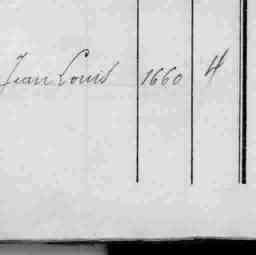 Jean Louis 1660 4